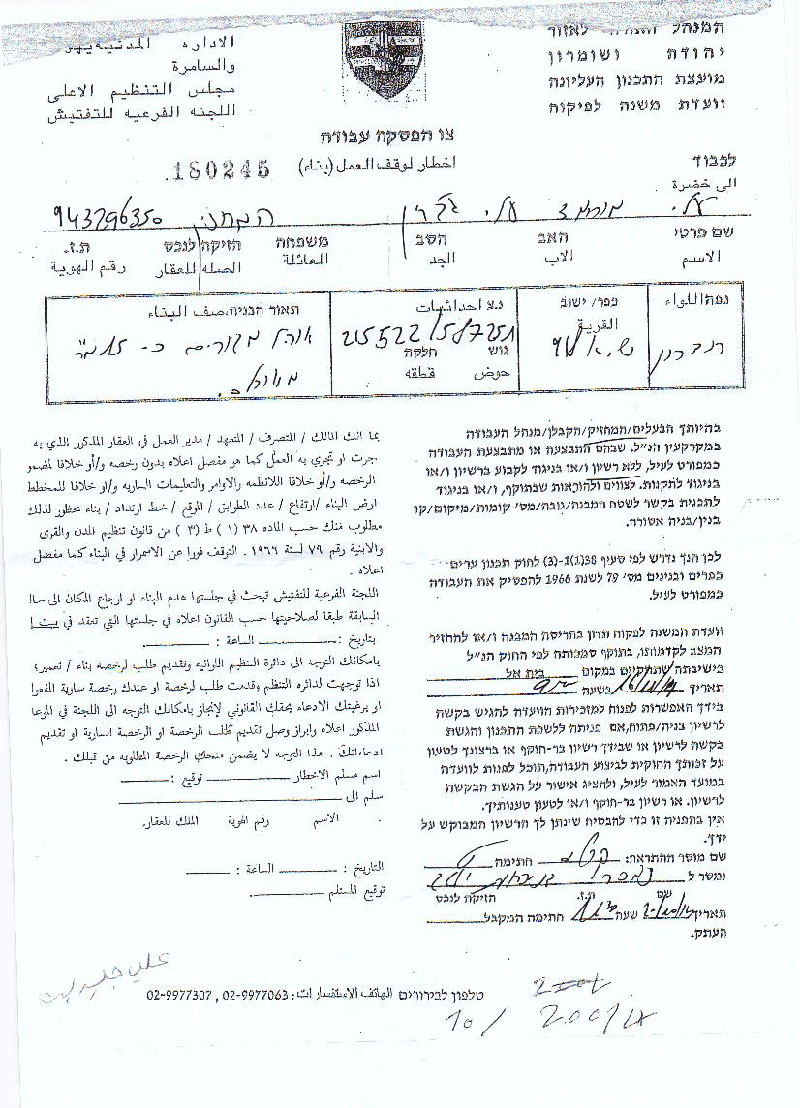 המנהל האזרחי לאזור
יהודה ושומרון
מועצת התכנון העליונה
וועדת משנה לפיקוח
الاداره المدنيه
والسامرة
مجلس التنظيم الاعلى
اللجنه الفرعيه للتفتيش
צו הפסקת עבודה
اخطار لوقف العمل (بناء)
180245
לכבוד
الى حضرة
עלי מוחמד עלי ג'בריל 943796350
שם פרטי האב הסב משפחה הזיקה לנכס ת.ז.
الاسم الاب الجد العائلة الصله للعقار رقم الهوية
נפה اللواء כפר/ ישוב القرية נ.צ احداثيات תאור הבניה وصف البناء
חברון 215522/587251
גוש חלקה
حوض قطعه
אוהל מגורים כ- 15 מ"ר
בהיותך הבעלים/המחזיק/הקבלן/מנהל העבודה
במקרקעין הנ"ל. שבהם התבצעה או מתבצעת העבודה
כמפורט לעיל, ללא רשיון ו/או בניגוד לקבוע ברשיון ו/או
בניגוד לתקנות. לצווים ולהוראות שבתוקף, ו/או בניגוד
לתכנית בקשר לשטח המבנה/גובה/מס' קומות/מיקום/קו
בנין/בניה אסורה.
לכן הנך נדרש לפי סעיף 38(1)-(3) לחוק תכנון ערים
כפרים ובנינים מס' 79 לשנת 1966 להפסיק את העבודה
כמפורט לעיל.
וועדת המשנה לפקוח תדון בהריסת המבנה ו/או להחזיר
המצב לקדמותו, בתוקף סמכותה לפי החוק הנ"ל
בישיבתה שתתקיים במקום בית אל
תאריך בשעה
בידך האפשרות לפנות למזכירות הוועדה להגיש בקשה
לרשיון בניה/פתוח, אם פניתה ללשכת התכנון והגשת
בקשה לרשיון או שבידך רשיון בר-תוקף או ברצונך לטעון
על זכותך החוקית לביצוע העבודה, תוכל לפנות לוועדה
במועד האמור לעיל, ולהציג אישור על הגשת הבקשה
לרשיון. או רשיון בר-תוקף ו/או לטעון טענותיך.
אין בהפניה זו כדי להבטיח שינתן לך הרשיון המבוקש על
ידך.
שם מוסר ההתראה: חתימה
ומסר ל
שם ת.ז. הזיקה לנכס
תאריך שעה חתימת המקבל
העתק.
بما انك المالك / المتصرف / المتعهد / مدير العمل في العقار المذكور الذي به
جرت او تجري به العمل كما هو مفصل اعلاه بدون رخصه و/أو خلافا لمضمون
الرخصه و/أو خلافا للانظمه والاوامر والتعليمات الساريه و/او خلافا للمخطط
ارض البناء /ارتفاع / عدد الطوابق / الموقع / خط ارتداد / بناء محظور لذلك
مطلوب منك حسب الماده ٣٨ (١) ط (٣) من قانون تنظيم المدن والقرى
والابنية رقم ٧٩ لسنة ١٩٦٦. التوقف فورا عن الاسمرار في البناء كما مفصل
اعلاه .
اللجنة الفرعية للتفتيش تبحث في جلستها هدم البناء او ارجاع المكان الى
السابقة طبقا لصلاحيتها حسب القانون اعلاه في جلستها التي تعقد في
بتاريخ: الساعة :
بامكانك التوجه الى دائرة التنظيم اللوائيه وتقديم طلب لرخصه بناء / تعمير؛
اذا توجهت لدائره التنظم وقدمت طلب لرخصة او عندك رخصة سارية المفعول
او برغبتك الادعاء بحقك القانوني لإنجاز بامكانك التوجه الى اللجنة في الموعد
المذكور اعلاه وإبراز وصل تقديم طلب الرخصة او الرخصة السارية او تقديم
ادعاءاتك . هذا التوجه لا يضمن منحك الرخصة المطلوبه من قبلك .
اسم مسلم الاخطار توقيع :
سلم الى
الاسم رقم الهوية الملك للعقار.
التاريخ : الساعة :
توقيع المستلم
טלפון לבירורים الهاتف الاستفسارات: 02-9977063 , 02-9977307